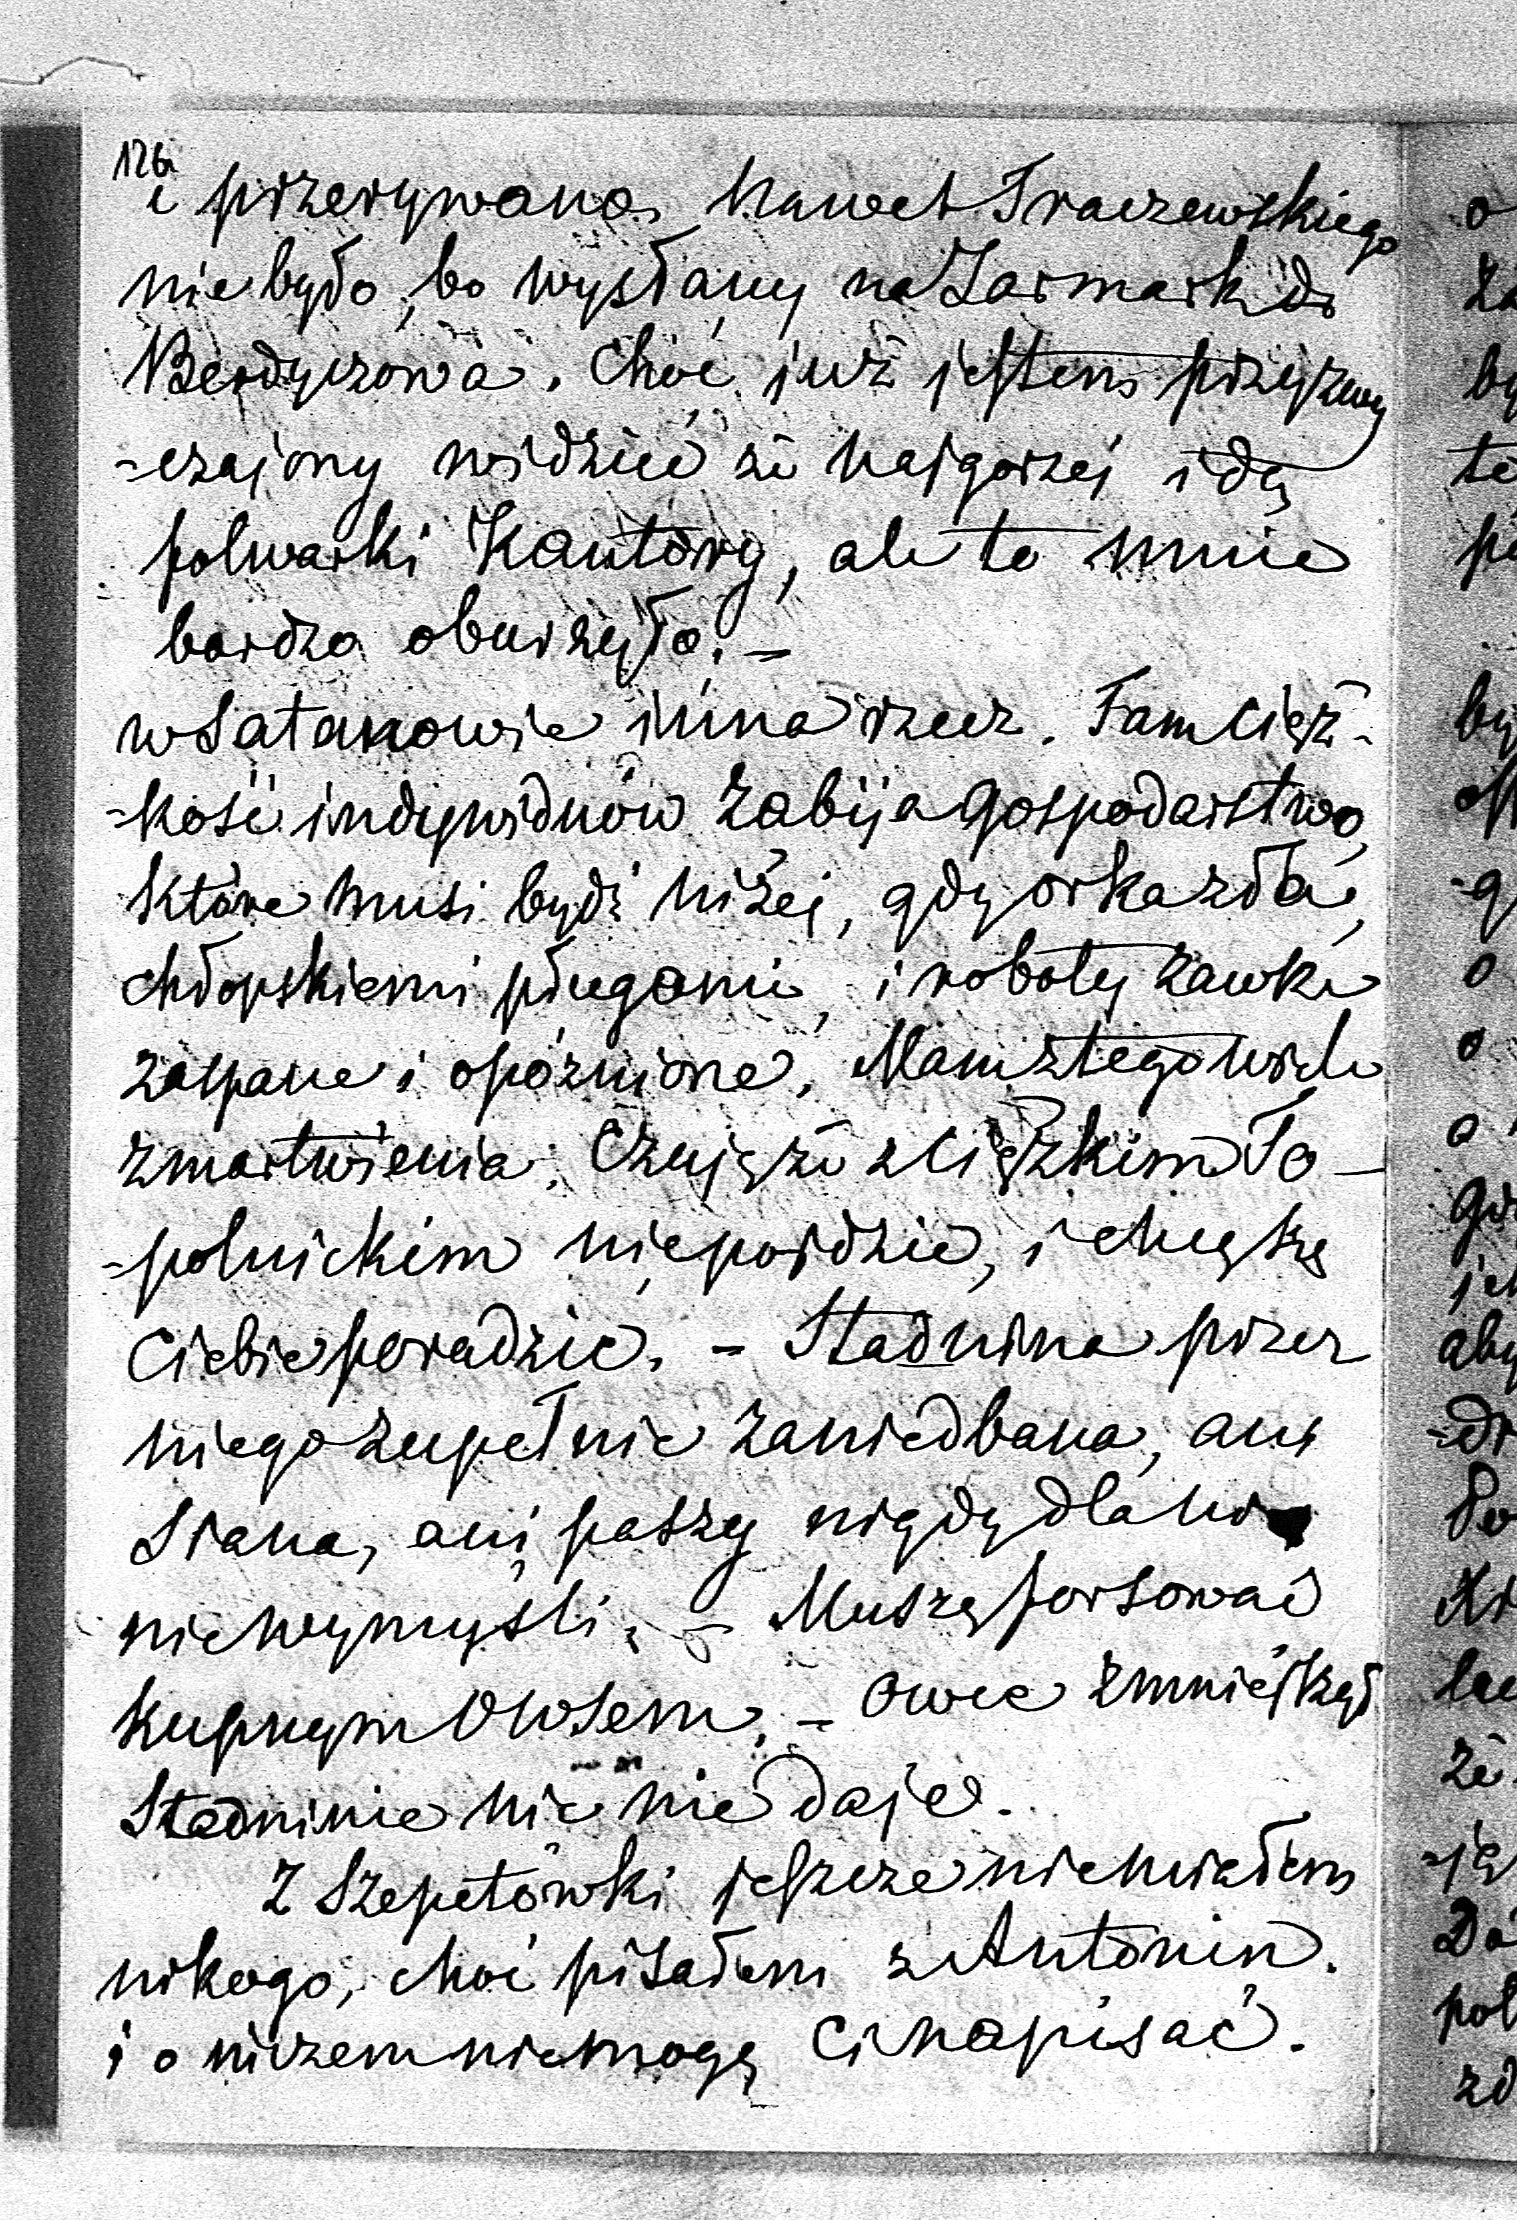 126
i przerywano, nawet Traczewskiego
nie było, bo wysłany na Jarmark do
Berdyczowa. Choć już jestem przyzwy
-czajony widzieć że najgorzej idą
folwarki Kantory, ale to mnie
bardzo oburzyło. –
w Satanowie inna rzecz. Tam cięż-
-kość indywiduów zabija gospodarstwo,
które musi bydź niżej, gdy orka zła,
chłopskiemi pługami, i roboty zawke
zaspane i opóźnione. Mam z tego wiele
zmartwienia. Czuję że z ciężkim To-
-polnickim niepojdzie, i chcę się
Ciebie poradzić. – Stadnina przez
niego zupełnie zaniedbana, ani
siana, ani paszy nigdy dla
nie wymyśli. – Muszę forsować
kupnym owsem. – Owce zmniejszył
Stadninie nic nie daje.
Z Szepetówki jeszcze niemiałem
nikogo, choć pisałem z Antonin.
i o niczem niemogę Ci napisać.